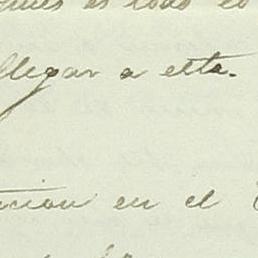 es todo lo
llegar a esta.
cion en el